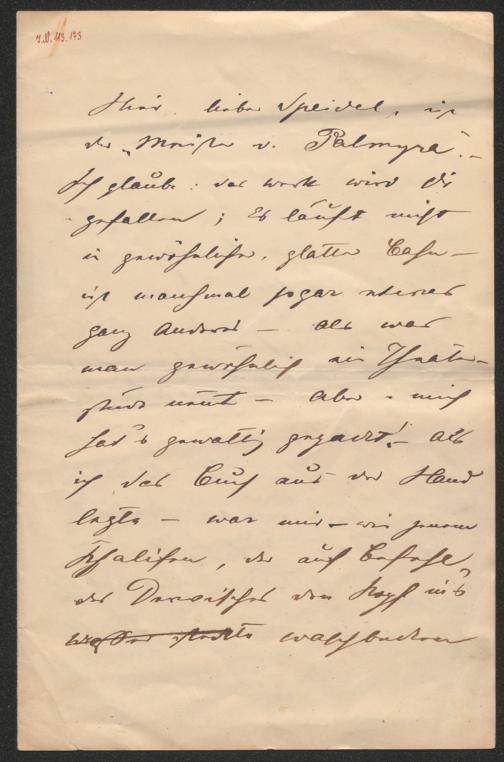 I.N. 113.173
Hier, lieber Speidel, ist
der „Meister v. Palmyra". –
Ich glaube: das Werk wird Dir
gefallen; Es läuft nicht
in gewöhnlicher, glatter Bahn –
ist manchmal sogar etwas
ganz Anderes – als was
man gewöhnlich ein Theater-
stück nennt – aber – mich
hat's gewaltig gepackt! – Als
ich das Buch aus der Hand
legte – war mir – wie jenem
Khalifen, der auf Befehl
des Derwisches den Kopf in's
Wasser steckte Waschbecken